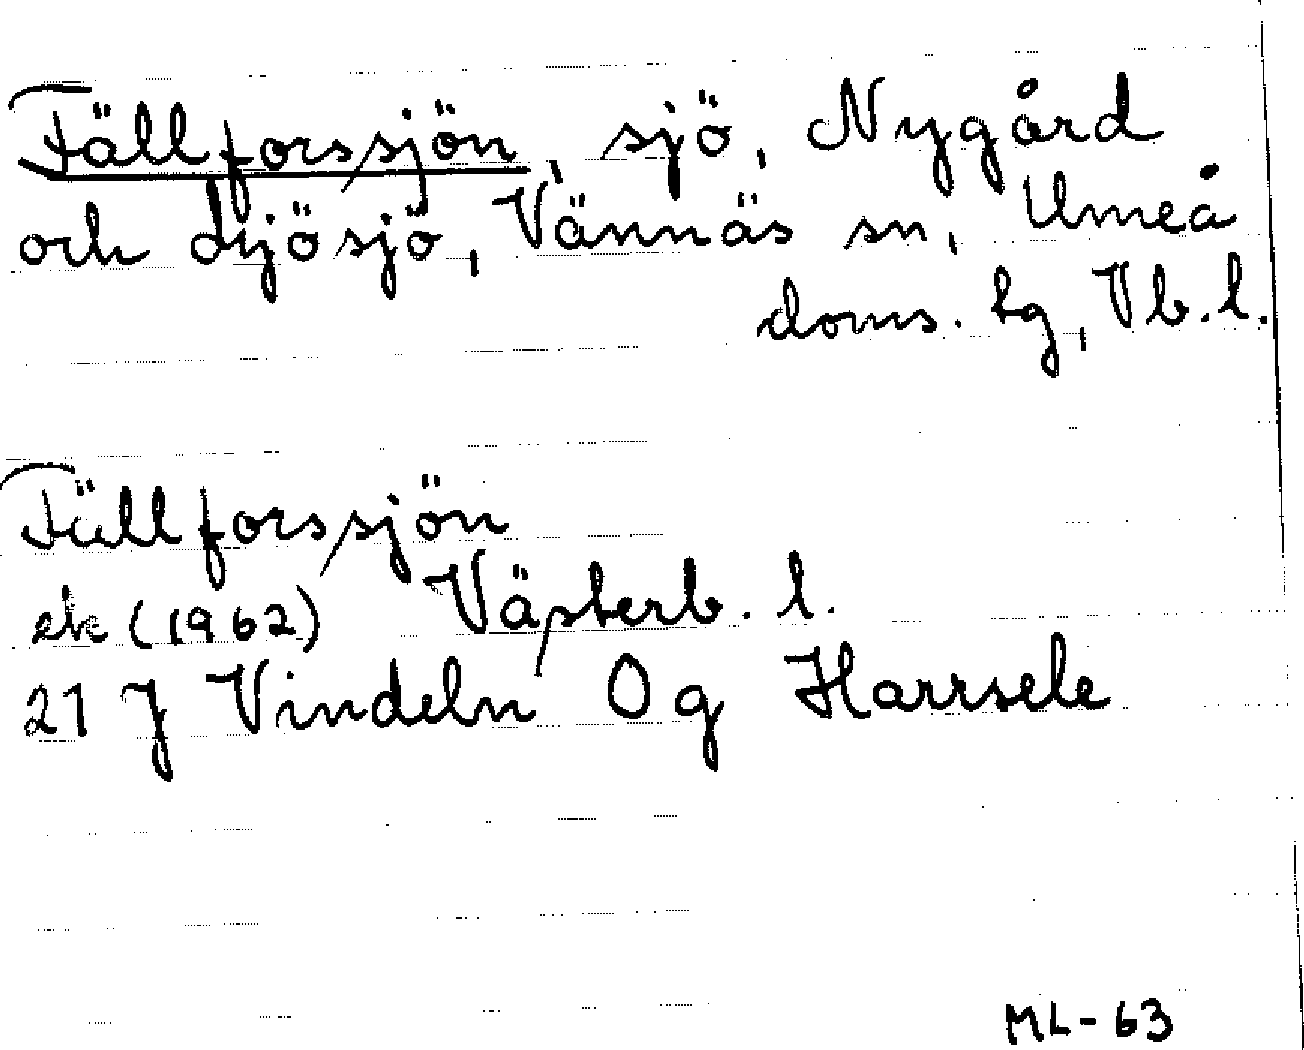 Fällforssjön, sjö, Nygård
och Djösjö, Vännäs sn, Umeå
doms. tg, Vb. l.
Fällforssjön
ek (1962) Västerb. l.
21 J Vindeln 0 g Harrsele
ML-63